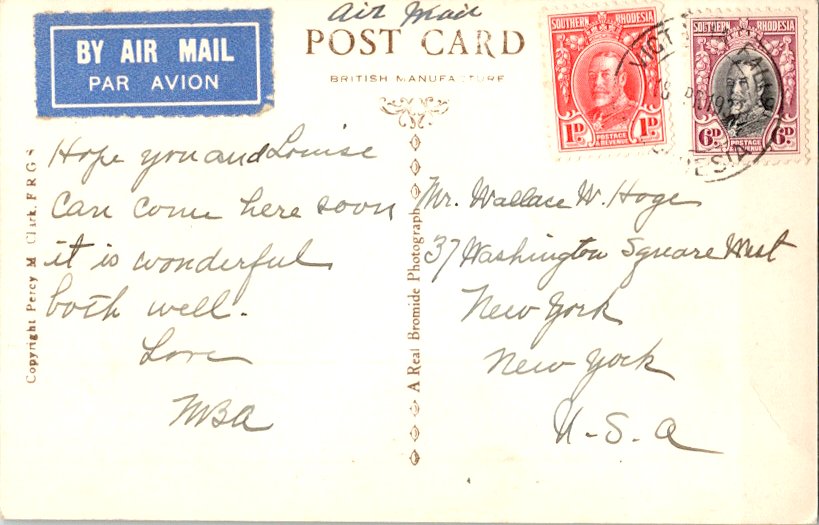 BY AIR MAIL
PAR AVION
Air Mail
POST CARD
BRITISH MANUFACTURE
SOUTHERN RHODESIA
1D 1D
POSTAGE
& REVENUE
SOUTHERN RHODESIA
6D 6D
POSTAGE
& REVENUE
Hope you and Louise
can come here soon
it is wonderful
both well.
Love
MBA
Copyright Percy M. Clark. F.R.G.S
A Real Bromide Photograph
Mr. Wallace W. Hoge
37 Washington Square West
New York
New York
U.S.A